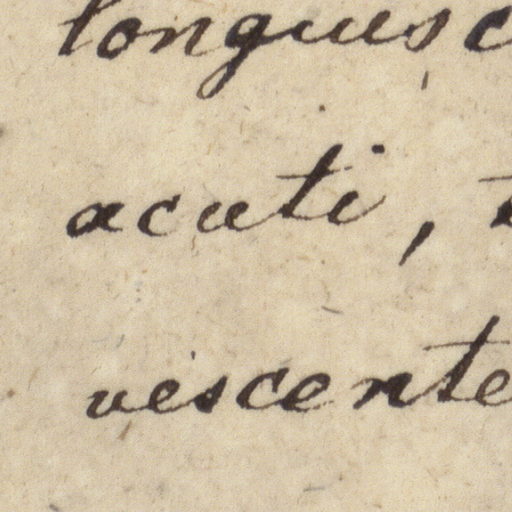 longues c
acuti, t
viscente